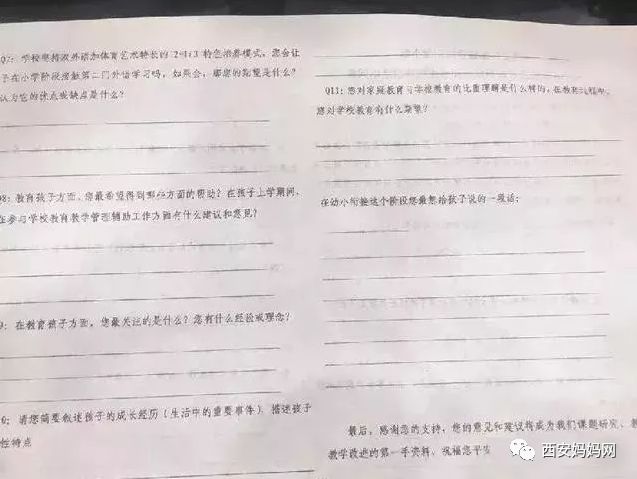 Q7: 学校坚持双外语加体育艺术特长的"2+1+3"特色培养模式，您会让
子在小学阶段接触第二门外语学习吗，如果会，那您的期望是什么？
认为它的优点或缺点是什么？
Q8: 教育孩子方面，您最希望得到哪些方面的帮助？在孩子上学期间，
在参与学校教育教学管理辅助工作方面有什么建议和意见？
9: 在教育孩子方面，您最关注的是什么？您有什么经验或理念？
请您简要叙述孩子的成长经历（生活中的重要事件），描述孩子
性特点
Q11: 您对家庭教育与学校教育的比重理解是什么样的，在教育过程中，
您对学校教育有什么期望？
在幼小衔接这个阶段您最想给孩子说的一段话：
最后，感谢您的支持，您的意见和建议将成为我们课题研究、
教学改进的第一手资料，祝福您平安
西安妈妈网